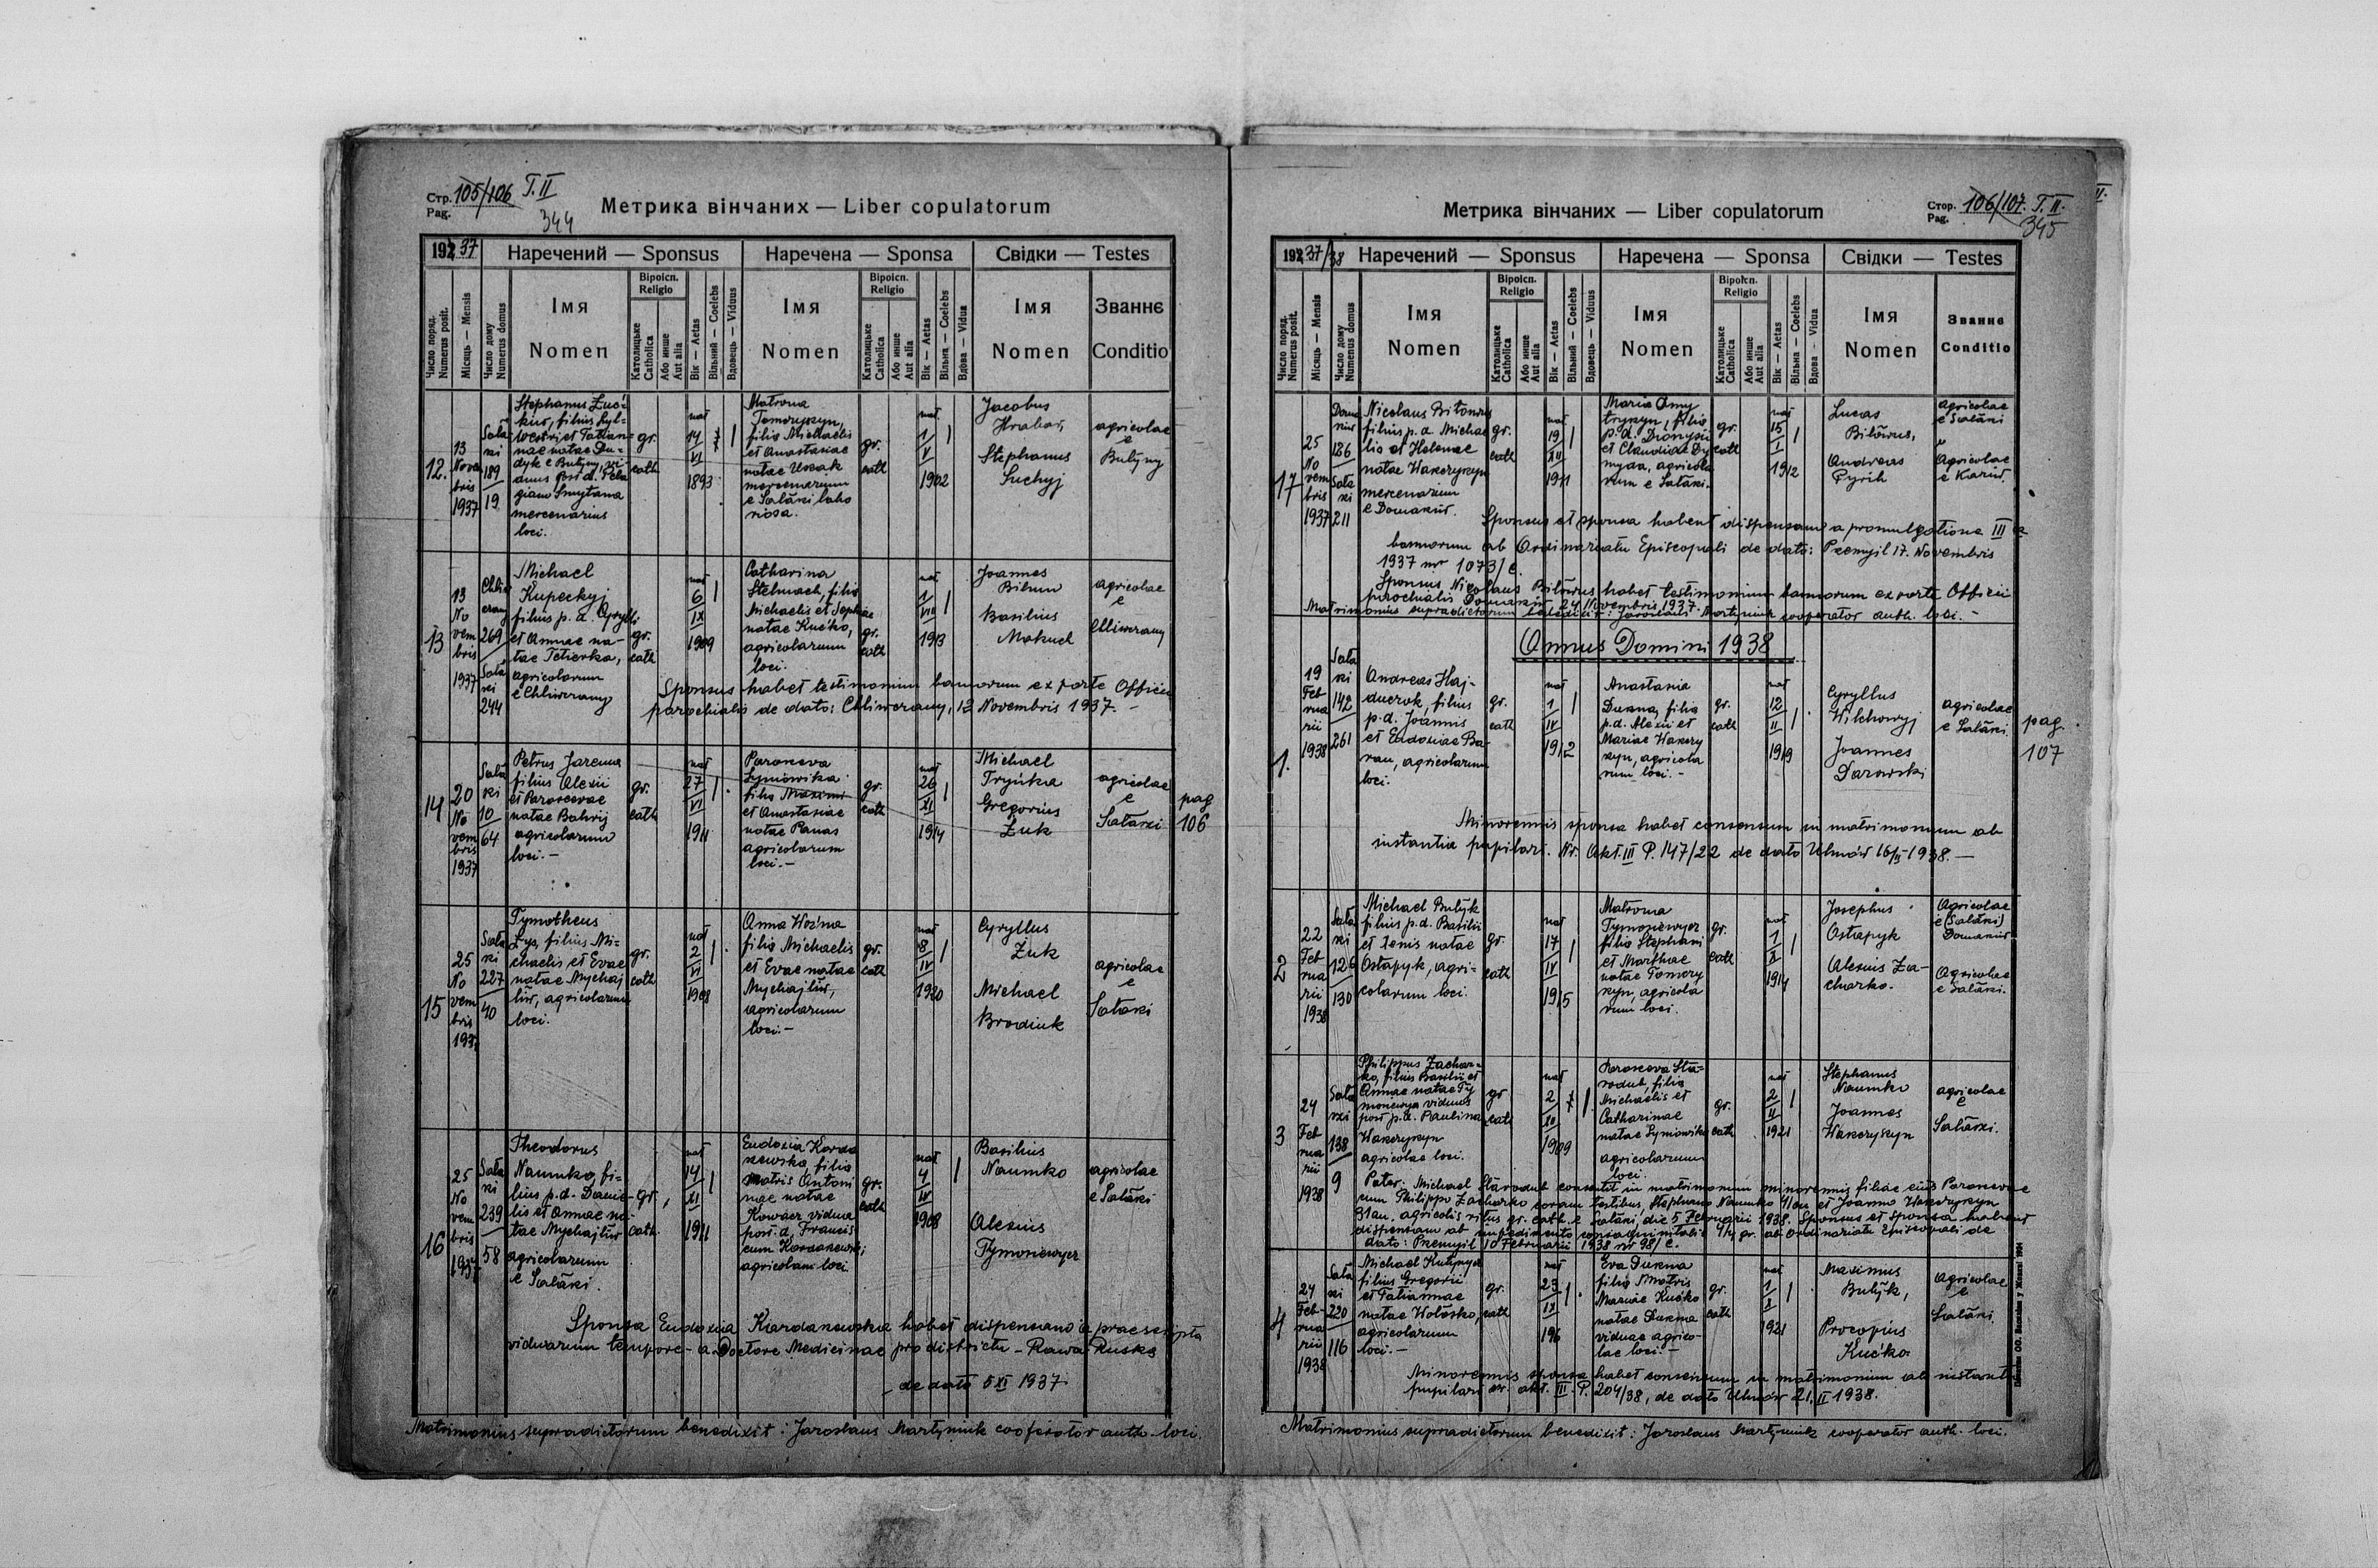 Стр. Pag. 105/106 T. II
344
Метрика вінчаних — Liber copulatorum
192 37
Наречений — Sponsus
Наречена — Sponsa
Свідки — Testes
Число поряд. Numerus posit.
Місяць — Mensis
Число дому Numerus domus
Імя
Nomen
Віроісп. Religio
Католицьке Catholica
Або инше Aut alia
Вік — Aetas
Вільний — Coelebs
Вдовець — Viduus
Імя
Nomen
Віроісп. Religio
Католицьке Catholica
Або инше Aut alia
Вік — Aetas
Вільна — Coelebs
Вдова — Vidua
Імя
Nomen
Званнє
Conditio
12.
13
Novem
bris
1937
Sała
ski
189
19
Stephanus
kiw, filius Syl-
vestri et Tatian-
nae natae Du-
dyk e Butyny, vi-
duus post d. Pela
giam Smytana
mercenarius
loci.
gr.
cath
nat
14
VI
1893
Matrona
filia Michaelis
et Anastasiae
natae
mercenarum
e Salaski
gr.
cath
nat
1
V
1902
Jacobus
Hrabar,
Stephanus
Suchyj
agricolae
e
Butyny
13
13
No
vem
bris
1937
269
Sała
ski
244
Michael
Kupeckyj
filius p. d. Cyrylli
et Annae na-
tae Teterka,
agricolarum
e Chliwczany
gr.
cath
nat
6
IX
1909
Catharina
Stelmach, filia
Michaelis et Sophiae
natae Kućko,
agricolarum
loci.
gr.
cath
nat
1
VIII
1913
Joannes
Basilius
Makuch
agricolae
e
Chliwczany
Sponsus habet testimonium bannorum ex parte Officii
parochialis de dato: Chliwczany, 12 Novembris 1937. —
14
20
No
vem
bris
1937
Sała
ski
10
64
Petrus Jarema
filius Alexii
et Parascevae
natae Bahrij
agricolarum
loci. —
gr.
cath
nat
27
VI
1911
Parasceva
Symowska
filia Maximi
et Anastasiae
natae Panas
agricolarum
loci. —
gr.
cath
nat
26
XI
1914
Michael
Gregorius
Żuk
agricolae
e
Sałaski
pag
106
15
25
No
vem
bris
1937
Sała
ski
227
40
Tymotheus
Lys, filius Mi-
chaelis et Evae
natae Mychaj
liw, agricolarum
loci.
gr.
cath
nat
2
VI
1908
Anna Woźna
filia Michaelis
et Evae natae
Mychajliw,
agricolarum
loci. —
gr.
cath
nat
8
IV
1920
Cyryllus
Żuk
Michael
Brodiuk
agricolae
e
Sałaski
16
25
No
vem
bris
1937
Sała
ski
239
58
Theodorus
Naumko, fi-
lius p. d. Danie-
lis et Annae na-
tae Mychajliw
agricolarum
e Salaski.
gr.
cath.
nat
14
XI
1911
Eudoxia Korda
szewska, filia
Matris Antoni
nae natae
Kowacz vidua
post d. Francis
cum
agricolam loci.
gr.
cath
nat
4
IV
1908
Basilius
Naumko
Alexius
Tymoniewycz
agricolae
e Salaski
Sponsa Eudoxia habet dispensam a praescripto
viduarum tempore a Doctore Medicinae pro districtu — Rawa Ruska
de dato 5 XI 1937
Matrimonius supradictorum benedixit: Jaroslaus Martyniuk cooperator auth. loci.
Метрика вінчаних — Liber copulatorum
Стор. Pag. 106/107. T. II.
345
192 37/38
Наречений — Sponsus
Наречена — Sponsa
Свідки — Testes
Число поряд. Numerus posit.
Місяць — Mensis
Число дому Numerus domus
Імя
Nomen
Віроісп. Religio
Католицьке Catholica
Або инше Aut alia
Вік — Aetas
Вільний — Coelebs
Вдовець — Viduus
Імя
Nomen
Віроісп. Religio
Католицьке Catholica
Або инше Aut alia
Вік — Aetas
Вільна — Coelebs
Вдова — Vidua
Імя
Nomen
Званнє
Conditio
17
25
No
vem
bris
1937
186
Sała
ski
211
Nicolaus
filius p. d. Michae
lis et Helenae
natae
mercenarium
e Domasziw.
gr.
cath
nat
19
XII
1911
Maria Dmy
tryszyn, filia
p. d. Dionysii
et Claudiae Dy
agricola
rum e Salaski.
gr.
cath
nat
15
I
1912
Lucas
Andreas
Pyrih
agricolae
e Salaski
Agricolae
e Kariw.
Sponsus et sponsa habent dispensam a promulgatione III
bannorum ab Ordinariatu Episcopali de dato: Przemyśl 17. Novembris
1937 nr 1073/C.
Sponsus Nicolaus habet testimonium bannorum ex parte Officii
parochialis Domaszów 24 Novembris 1937.
Matrimonius supradictorum benedixit: Jaroslaus Martyniuk cooperator auth. loci. —
Annus Domini 1938
1.
19
Feb
rua
rii
1938
Sała
ski
142
261
Andreas Haj-
duczok, filius
p. d. Joannis
et Eudoxiae Ba-
ran, agricolarum
loci.
gr.
cath
nat
1
IV
1912
Anastasia
Dukna, filia
p. d. Alexii et
Mariae
agricola
rum loci. —
gr.
cath
nat
12
II
1919
Cyryllus
Wilchowyj
Joannes
Darowski
agricolae
e Salaski
pag.
107
Minorennis sponsa habet consensum in matrimonium ab
instantia pupilari. Nr. Akt. III P. 147/22 de dato Uhnów 16/II 1938. —
2
22
Feb
rua
rii
1938
Sała
ski
126
130
Michael Butyk
filius p. d. Basilii
et Xenis natae
Ostapyk, agri-
colarum loci.
gr.
cath
nat
17
IV
1915
Matrona
Tymoniewycz
filia Stephani
et Marthae
natae
agricola
rum loci.
gr.
cath
nat
1
X
1914
Josephus
Ostapyk
Alexius Za-
charko.
Agricolae
e (Salaski)
Domaszów
Agricolae
e Salaski.
3
24
Feb
rua
rii
1938
Sała
ski
138
9
Philippus Zachar-
ko, filius Basilii et
Annae natae Ty
moniewycz viduus
post p. d. Paulina
agricolae loci.
gr
cath
nat
2
XI
1909
Parasceva Sta-
rodub, filia
Michaelis et
Catharinae
natae Symowska
agricolarum
loci.
gr.
cath
nat
2
II
1921
Stephanus
Naumko
Joannes
agricolae
e
Salaski.
Pater: Michael Starodub consentit in matrimonium minorennis filiae eius Parascevae
cum Philippo Zacharko coram testibus, Stephano Naumko et Joanno
31 an. agricolis ritus gr. cath. e Salaski, die 5 Februarii 1938. Sponsus et Sponsa habent
dispensam ab impedimento consanguinitatis gr. ab Ordinariatu Episcopali de
dato: Przemyśl 10 Februarii 1938 nr 98/C.
4
24
Feb-
rua
rii
1938
Sała
ski
220
116
Michael
filius Gregorii
et Tatiannae
natae Wołosko,
agricolarum
loci. —
gr.
cath
nat
23
IX
196
Eva Dukna
filia Matris
Mariae Kućko
natae Dukna
viduae agrico-
lae loci. —
gr.
cath
nat
1
X
1921
Maximus
Butyk,
Procopius
Kućko
agricolae
e
Salaski
Minorennis sponsa habet consensum in matrimonium ab instantia
pupilari nr. akt. III P. 204/38, de dato Uhnów 21. II 1938.
Matrimonius supradictorum benedixit: Jaroslaus Martyniuk cooperator auth. loci.